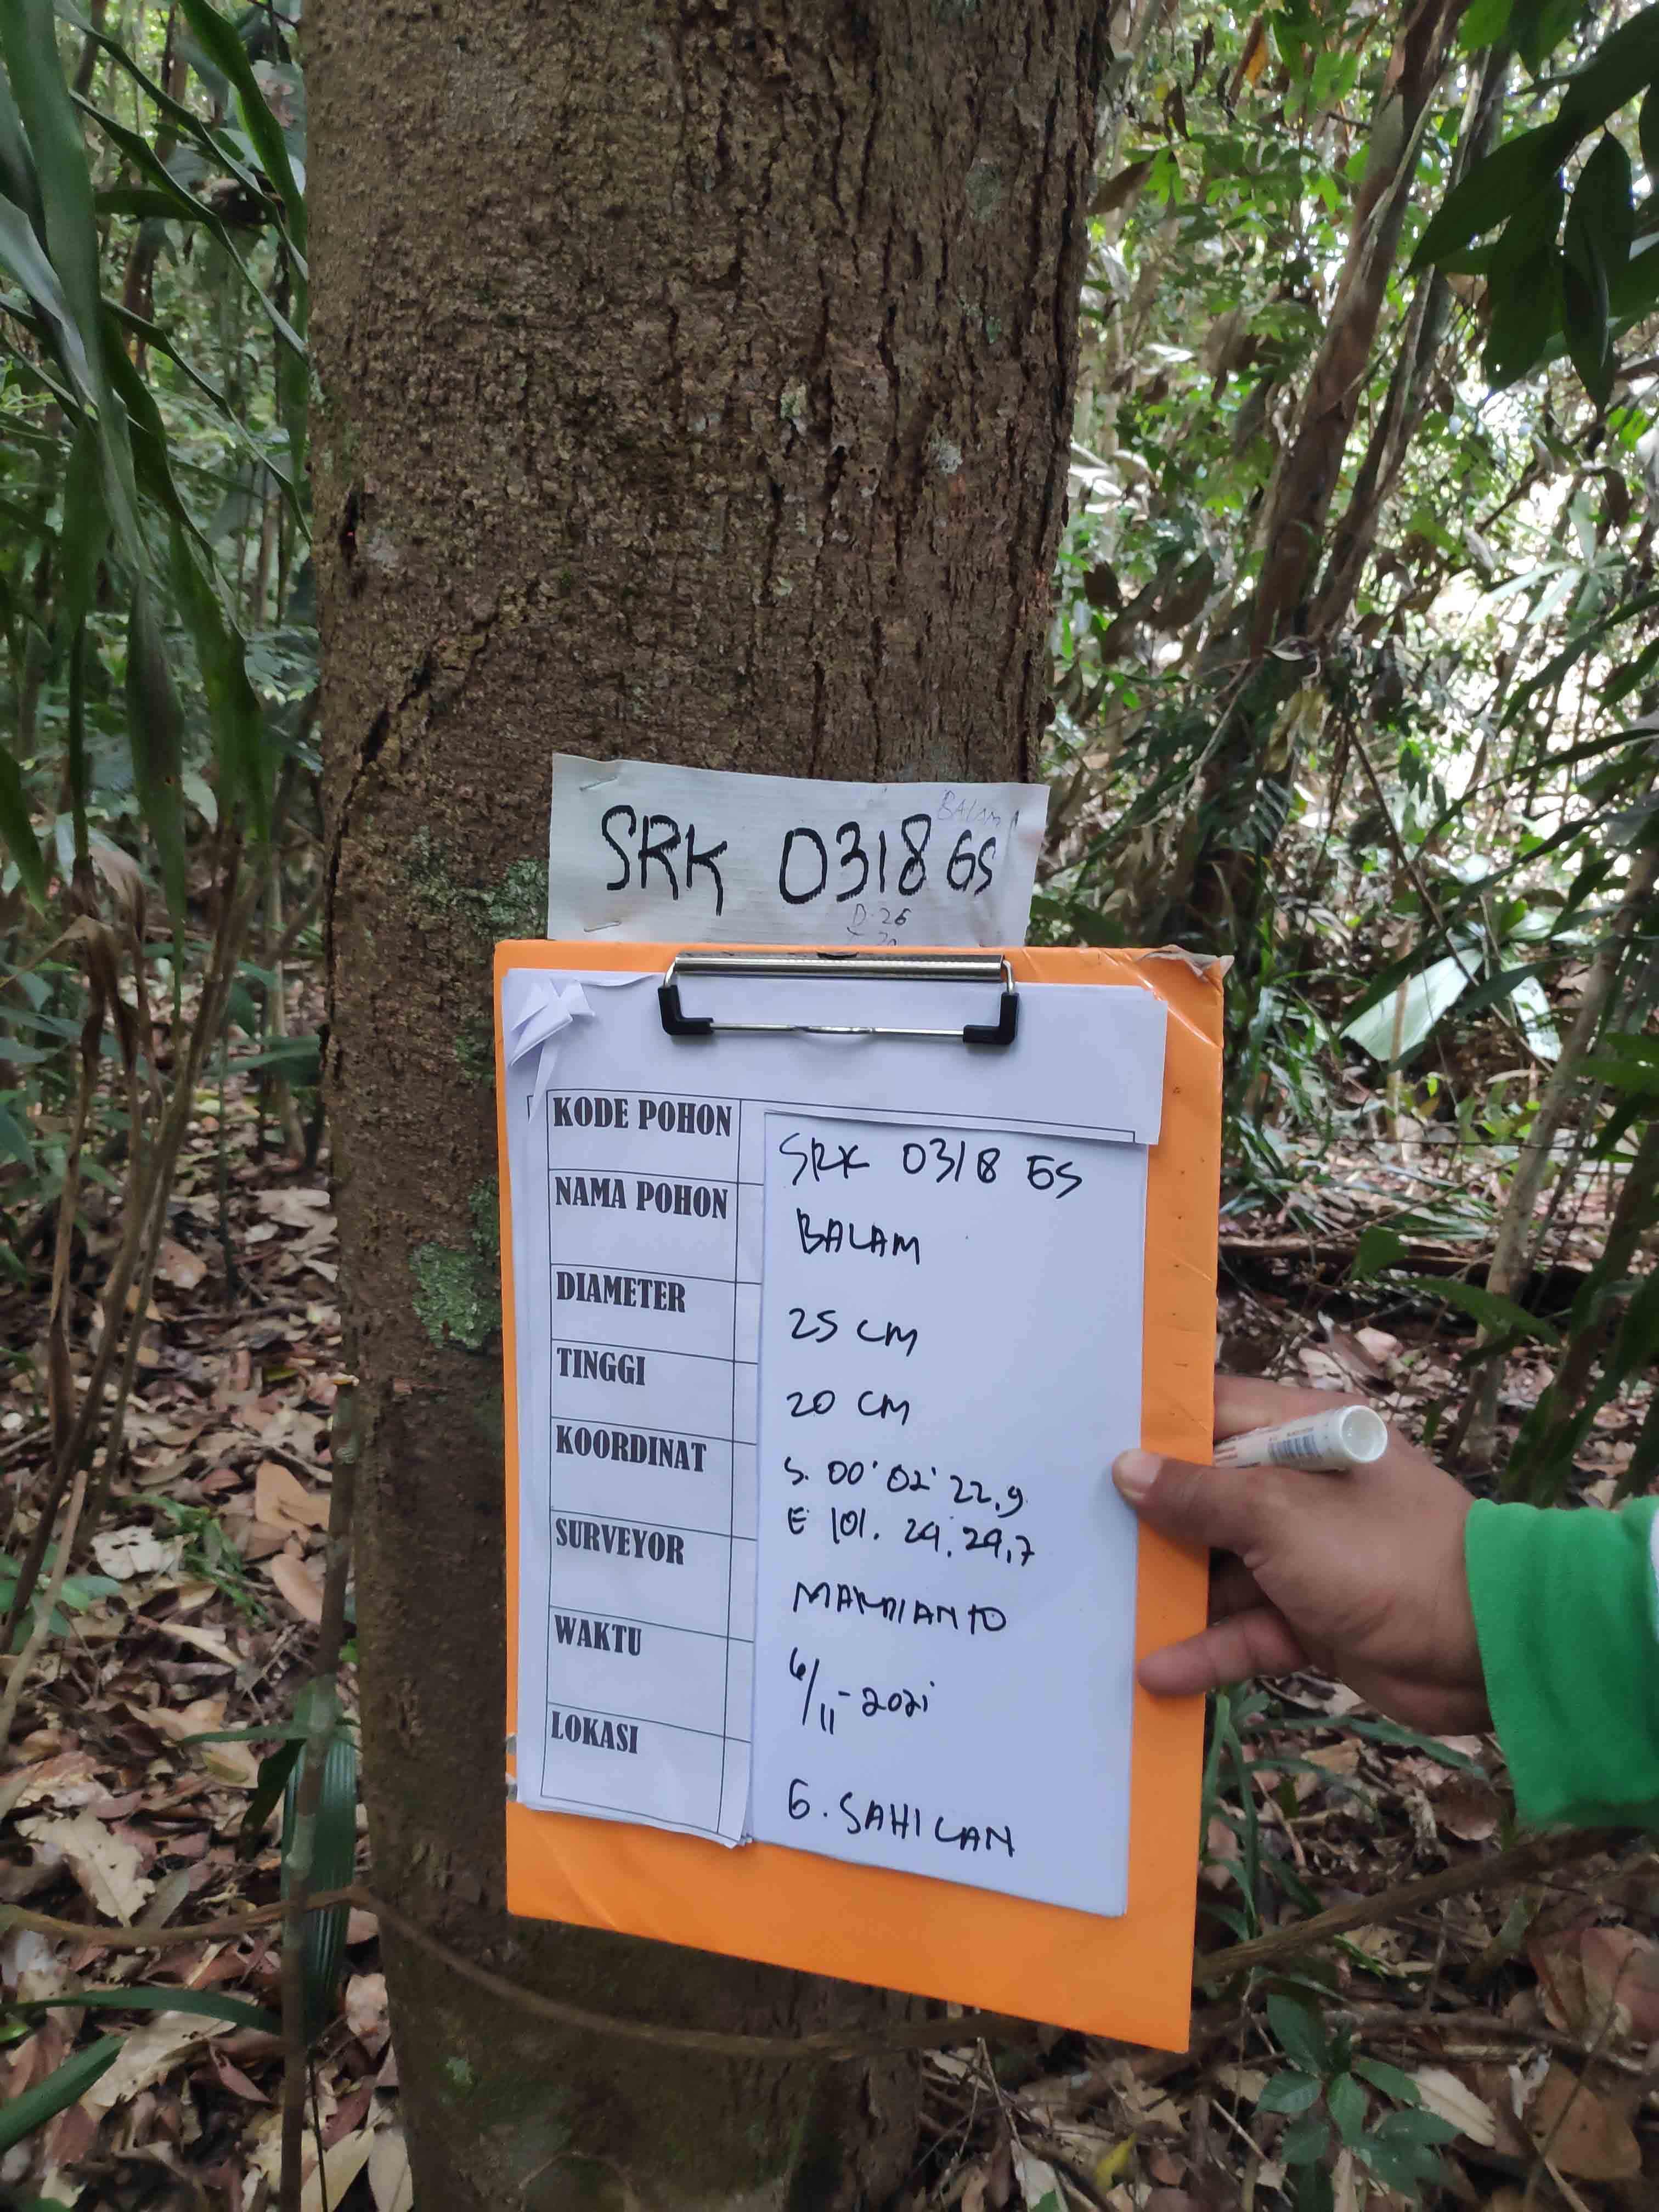 BALAM
SRK 0318 GS
D. 26
KODE POHON SRK 0318 GS
NAMA POHON BALAM
DIAMETER 25 CM
TINGGI 20 CM
KOORDINAT S. 00° 02' 22,9
E 101. 24. 29,7
SURVEYOR MARDIANTO
WAKTU 6/11-2021
LOKASI G. SAHILAN